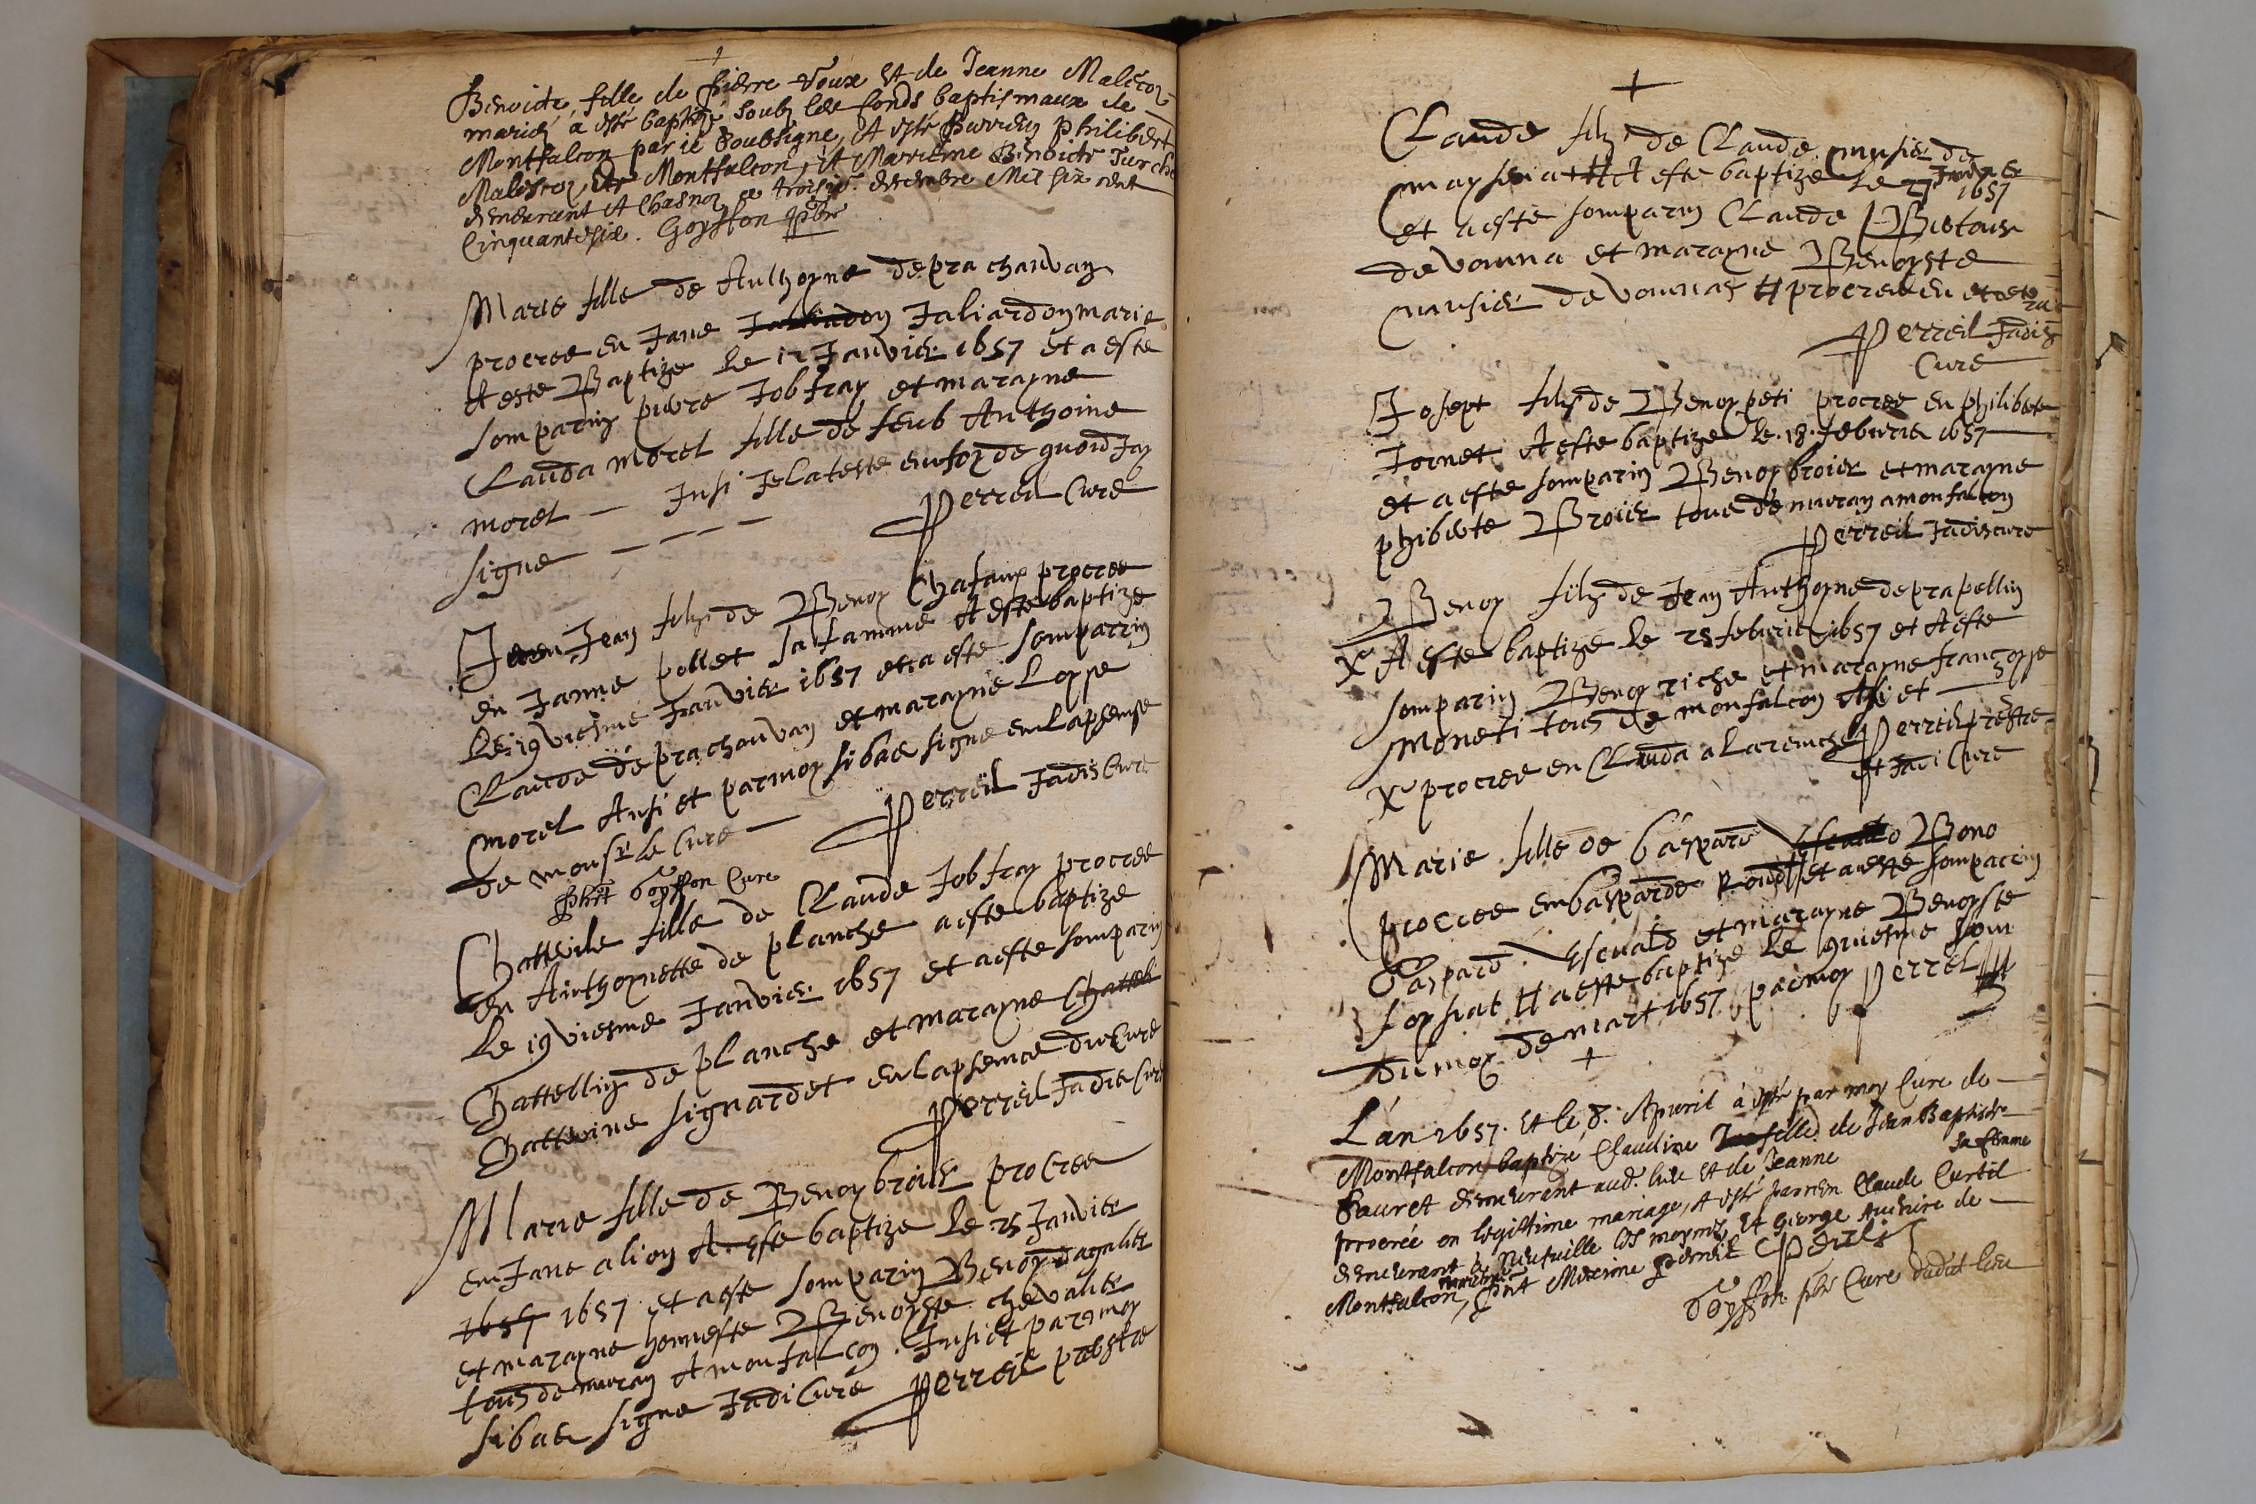 +
Benoicte fille de Pierre Voux et de Jeanne Malecoz
mariez a esté baptizé soubz les fonds baptismaux de
Montfalcon par ie soubsigné, et esté parrein Philibert
Malecoz de Montfalcon, et Marreine Benoicte Turche
demeurant a Chasnoz ce troisie. decembre Mil six cent
Cinquantesix. Goyffon pbre
Marie fille de Anthoyne de prachauvay
procree en Jane Jaliardoy marie
A este Baptize le 12 Janvier 1657 et a este
somparin piere Jobfray et marayne
Clauda morel fille de feub Anthoine
morel — Insi Je lateste en foy de quoi Jay
signe — — — Perreil Cure
Jean filz de Benoy Chafaux procree
en Janne pollet sa famme A este baptize
Le 19viesme Janvier 1657 et a este somparrin
Claude de prachauvay et marayne Loyse
morel Ansi et par moy sibae signe en lapsense
de monsr le Cure — Perreil Jadis Cure
Goyffon Cure
Chatterine fille de Claude Jobfray procree
en Anthoynette de planche a este baptize
Le 19viesme Janvier 1657 et a este somparin
Chattelliy de planche et marayne
Chatterine signardet en lapsence du Cure
Perreil Jadis Cure
Marie fille de Benoy broier procree
en Jane alioy A este baptize le 25 Janvier
1657 1657 et a este somparin Benoy dagalier
et marayne honneste Benoyste chevalier
tous demuray A monfalcoy. Insi et par moy
sibae signe Jadi Cure Perreil prebstre
+
Claude filz de Claude musier de
maysseria # A este baptize Le 27 Janvier
1657
et a este somparin Claude Bictour
de vonna et marayne Benoyste
musier de vonnas # procree en
Perreil Jadis
Cure
Josept filz de Benoy peti procree en philiberte
Jornet A este baptize le .18. feburier 1657
et a este somparin Benoy broier et marayne
phiberte Broier tous demuray a monfalcon
Perreil Jadis cure
Benoy filz de Jean Anthoyne de prapelliy
X A este baptize le 25 feburier 1657 et A este
somparin Benoy riche et marayne françoyse
moneti tous de monfalcon Ansi et —
X procree en Clauda alarenche Perreil prestre
et Jadi Cure
Marie fille de Gaspard Bono
procree en Gasparde # et a este somparrin
Gaspard Escuald et marayne Benoyste
foysiat # a este baptize le 9viesme Jour
du moy de mart 1657 par moy Perrel
+
L'an 1657. et le 8. Apvril à esté par moy Cure de —
Montfalcon baptizé Claudine fille de Jean Baptiste
Fauret demeurant aud. lieu et de Jeanne sa feme
procréé en legittime mariage, a esté parrein Claude Curtil
demeurant a Neufville les moynes et George Auchire de —
Montfalcon marreine Perreil
Goyffon pbr Cure dudit lieu